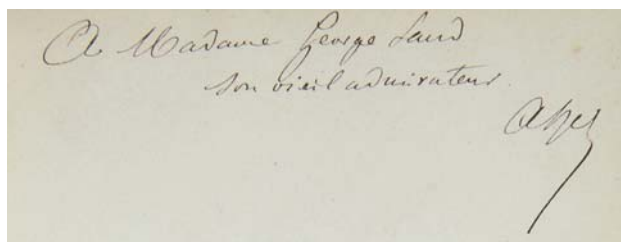 A Madame George Sand
son vieil admirateur.